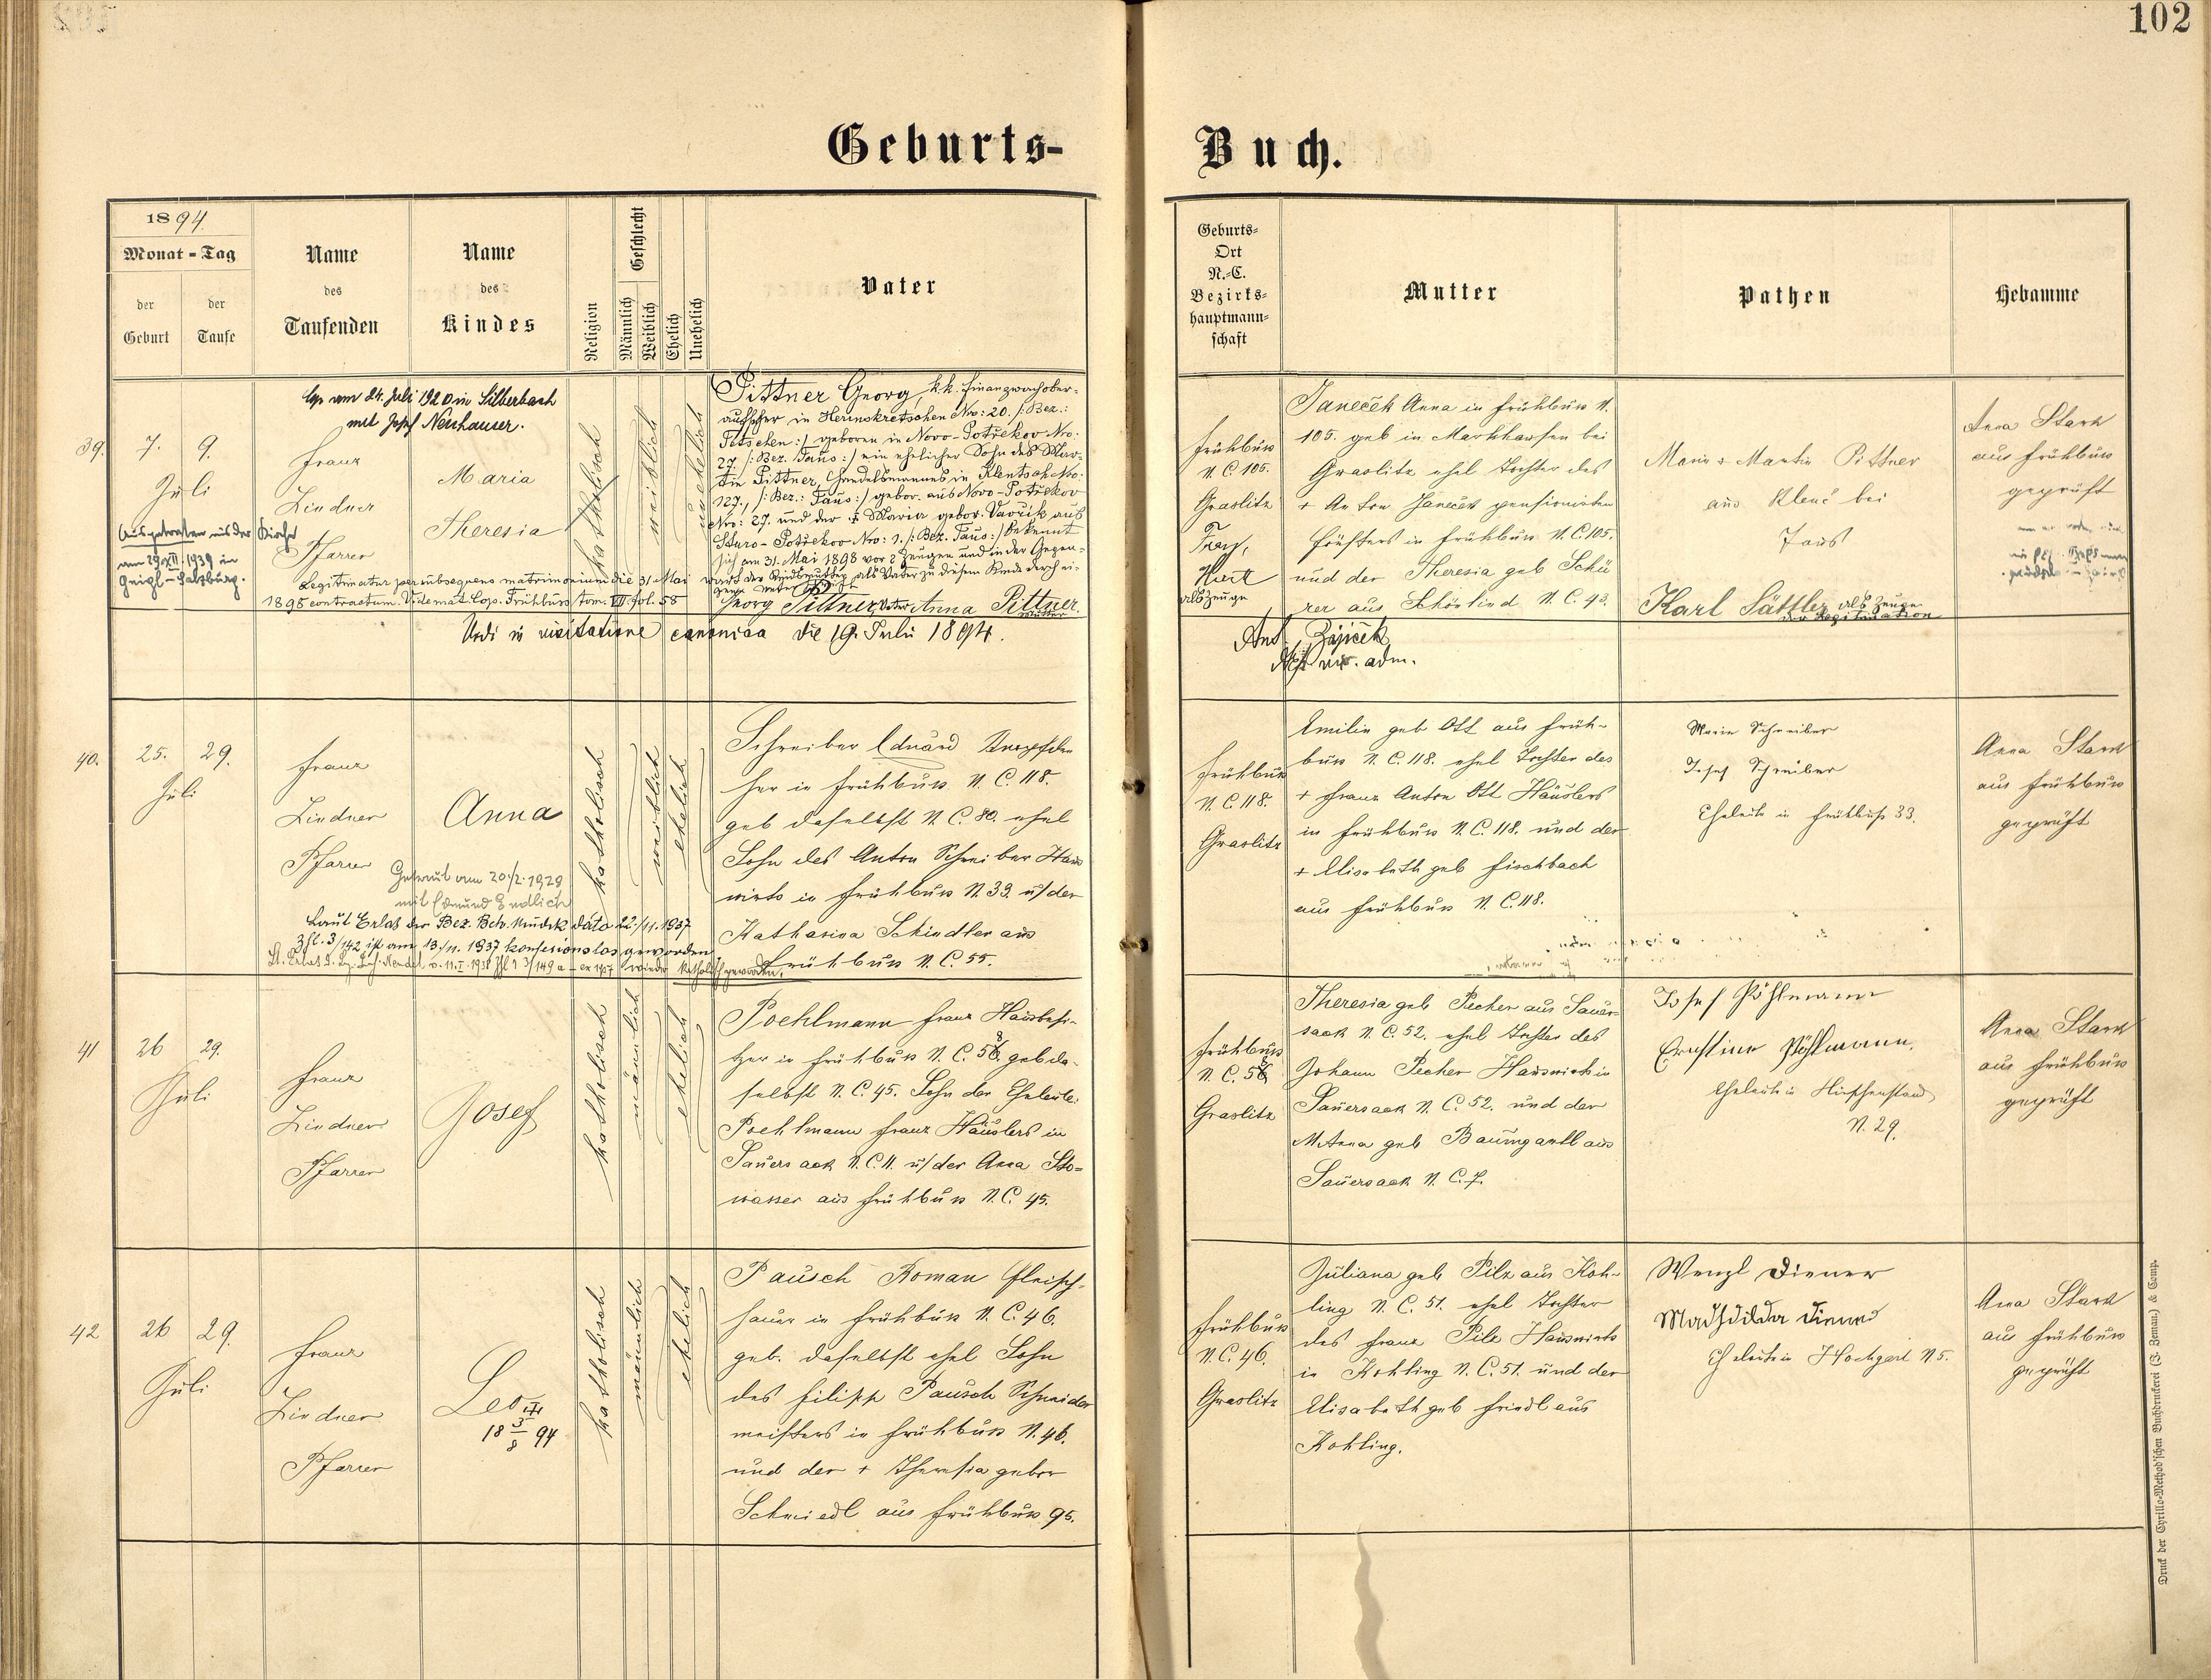 102
Geburts-
Buch.
1894.
Monat - Tag
der
Geburt
der
Taufe
Name
des
Taufenden
Name
des
Kindes
Religion
Geschlecht
Männlich
Weiblich
Ehelich
Unehelich
Vater
Geburts-
Ort
N.-C.
Bezirks-
hauptmann-
schaft
Mutter
Pathen
Hebamme
Cop am 24. Juli 1920 in Silberbach
mit Josef Neuhauser.
39.
7. 9.
Juli
Ausgetreten aus der Kirche
am 29. XII. 1939 in
Gnigl-Salzburg.
Franz
Lindner
Pfarrer
Maria
Theresia
katholisch
weiblich
unehelich
Pittner Georg, k.k. Finanzwachober-
aufseher in Herrnskretschen Nro: 20. /: Bez.:
Tetschen :/ geboren in Novo-Potřekov Nro:
27. /: Bez. Taus :/ ein ehelicher Sohn des Mar-
tin Pittner, Handelsmannes in Klentsch Nro:
127., /: Bez.: Taus :/ gebor. aus Novo-Potřekov
Nro: 27. und der Maria gebor. Vavřík aus
Staro-Potřekov Nro: 1. /: Bez. Taus :/ bekennt
sich am 31. Mai 1898 vor 2 Zeugen und in der Gegen-
wart der Kindsmutter als Vater zu diesem Kinde durch ei-
gene
Georg Pittner, Vater Anna Pittner.
Mutter
Legitimatur per subsequens matrimonium die 31 Mai
1898 contractum. Vide mat. Cop. Frühbuss tom. VII. fol. 58
Frühbuss
N.C. 105.
Graslitz
Franz
Hartl
als Zeuge
Janeček Anna in Frühbuss N.
105. geb in Markhausen bei
Graslitz ehel Tochter des
+ Anton Janeček pensionirten
Försters in Frühbuss N.C. 105.
und der Theresia geb Schü
rer aus Schönlind N.C. 43.
Maria & Martin Pittner
aus Klenč bei
Taus
Karl Sättler als Zeuge
der Legitimation
Anna Stark
aus Frühbuss
geprüft
Vidi in visitatione canonica die 19. Juli 1894.
Ant. Zajíček
vic. adm.
40.
25. 29.
Juli
Franz
Lindner
Pfarrer
Anna
katholisch
weiblich
ehelich
Getraut am 20./2. 1929
mit Edmund Endlich
Laut Erlaß der Bez. Beh. Neudek dato 22./11. 1937
Zhl. 3/142 ist am 13./11. 1937 konfessionslos geworden
wieder katholisch geworden.
Schreiber Eduard Knopfdre
her in Frühbuss N.C. 118.
geb daselbst N.C. 80. ehel
Sohn des Anton Schreiber Haus
wirts in Frühbuss N. 33. u/ der
Katharina Schindler aus
Frühbuss N.C. 55.
Frühbuss
N.C. 118.
Graslitz
Emilie geb Ott aus Früh-
buss N.C. 118. ehel Tochter des
+ Franz Anton Ott Häuslers
in Frühbuss N.C. 118. und der
+ Elisabeth geb Fischbach
aus Frühbuss N.C. 118.
Marie Schreiber
Josef Schreiber
Eheleute in Frühbuß 33.
Anna Stark
aus Frühbuss
geprüft
41
26 29.
Juli
Franz
Lindner
Pfarrer
Josef
katholisch
männlich
ehelich
Poehlmann Franz Hausbesi-
tzer in Frühbuss N.C. 58. geb da-
selbst N.C. 45. Sohn der Eheleute:
Poehlmann Franz Häuslers in
Sauersack N.C. 11. u/ der Anna Sto-
wasser aus Frühbuss N.C. 45.
Frühbuss
N.C. 58
Graslitz
Theresia geb Pecher aus Sauer-
sack N.C. 52. ehel Tochter des
Johann Pecher Hauswirth in
Sauersack N.C. 52. und der
M. Anna geb Baumgartl aus
Sauersack N.C. 7.
Josef Pöhlmann
Ernstine Pöhlmann.
Eheleute in Hirschenstand
N. 29.
Anna Stark
aus Frühbuss
geprüft
42
26 29.
Juli
Franz
Lindner
Pfarrer
Leo
18 3/8 94
katholisch
männlich
ehelich
Pausch Roman Fleisch-
hauer in Frühbuss N.C. 46.
geb. daselbst ehel Sohn
des Filipp Pausch Schneider
meisters in Frühbuss N. 46.
und der + Theresia gebor
Schmiedl aus Frühbuss 95.
Frühbuss
N.C. 46.
Graslitz
Juliana geb Pilz aus Koh-
ling N.C. 51. ehel Tochter
des Franz Pilz Hauswirts
in Kohling N.C. 51. und der
Elisabeth geb Friedl aus
Kohling.
Wenzl Diener
Mathilda Diener
Eheleute in Hochgart N 5.
Anna Stark
aus Frühbuss
geprüft
Druck der Cyrillo-Method'schen Buchdruckerei (J. Zeman) & Comp.